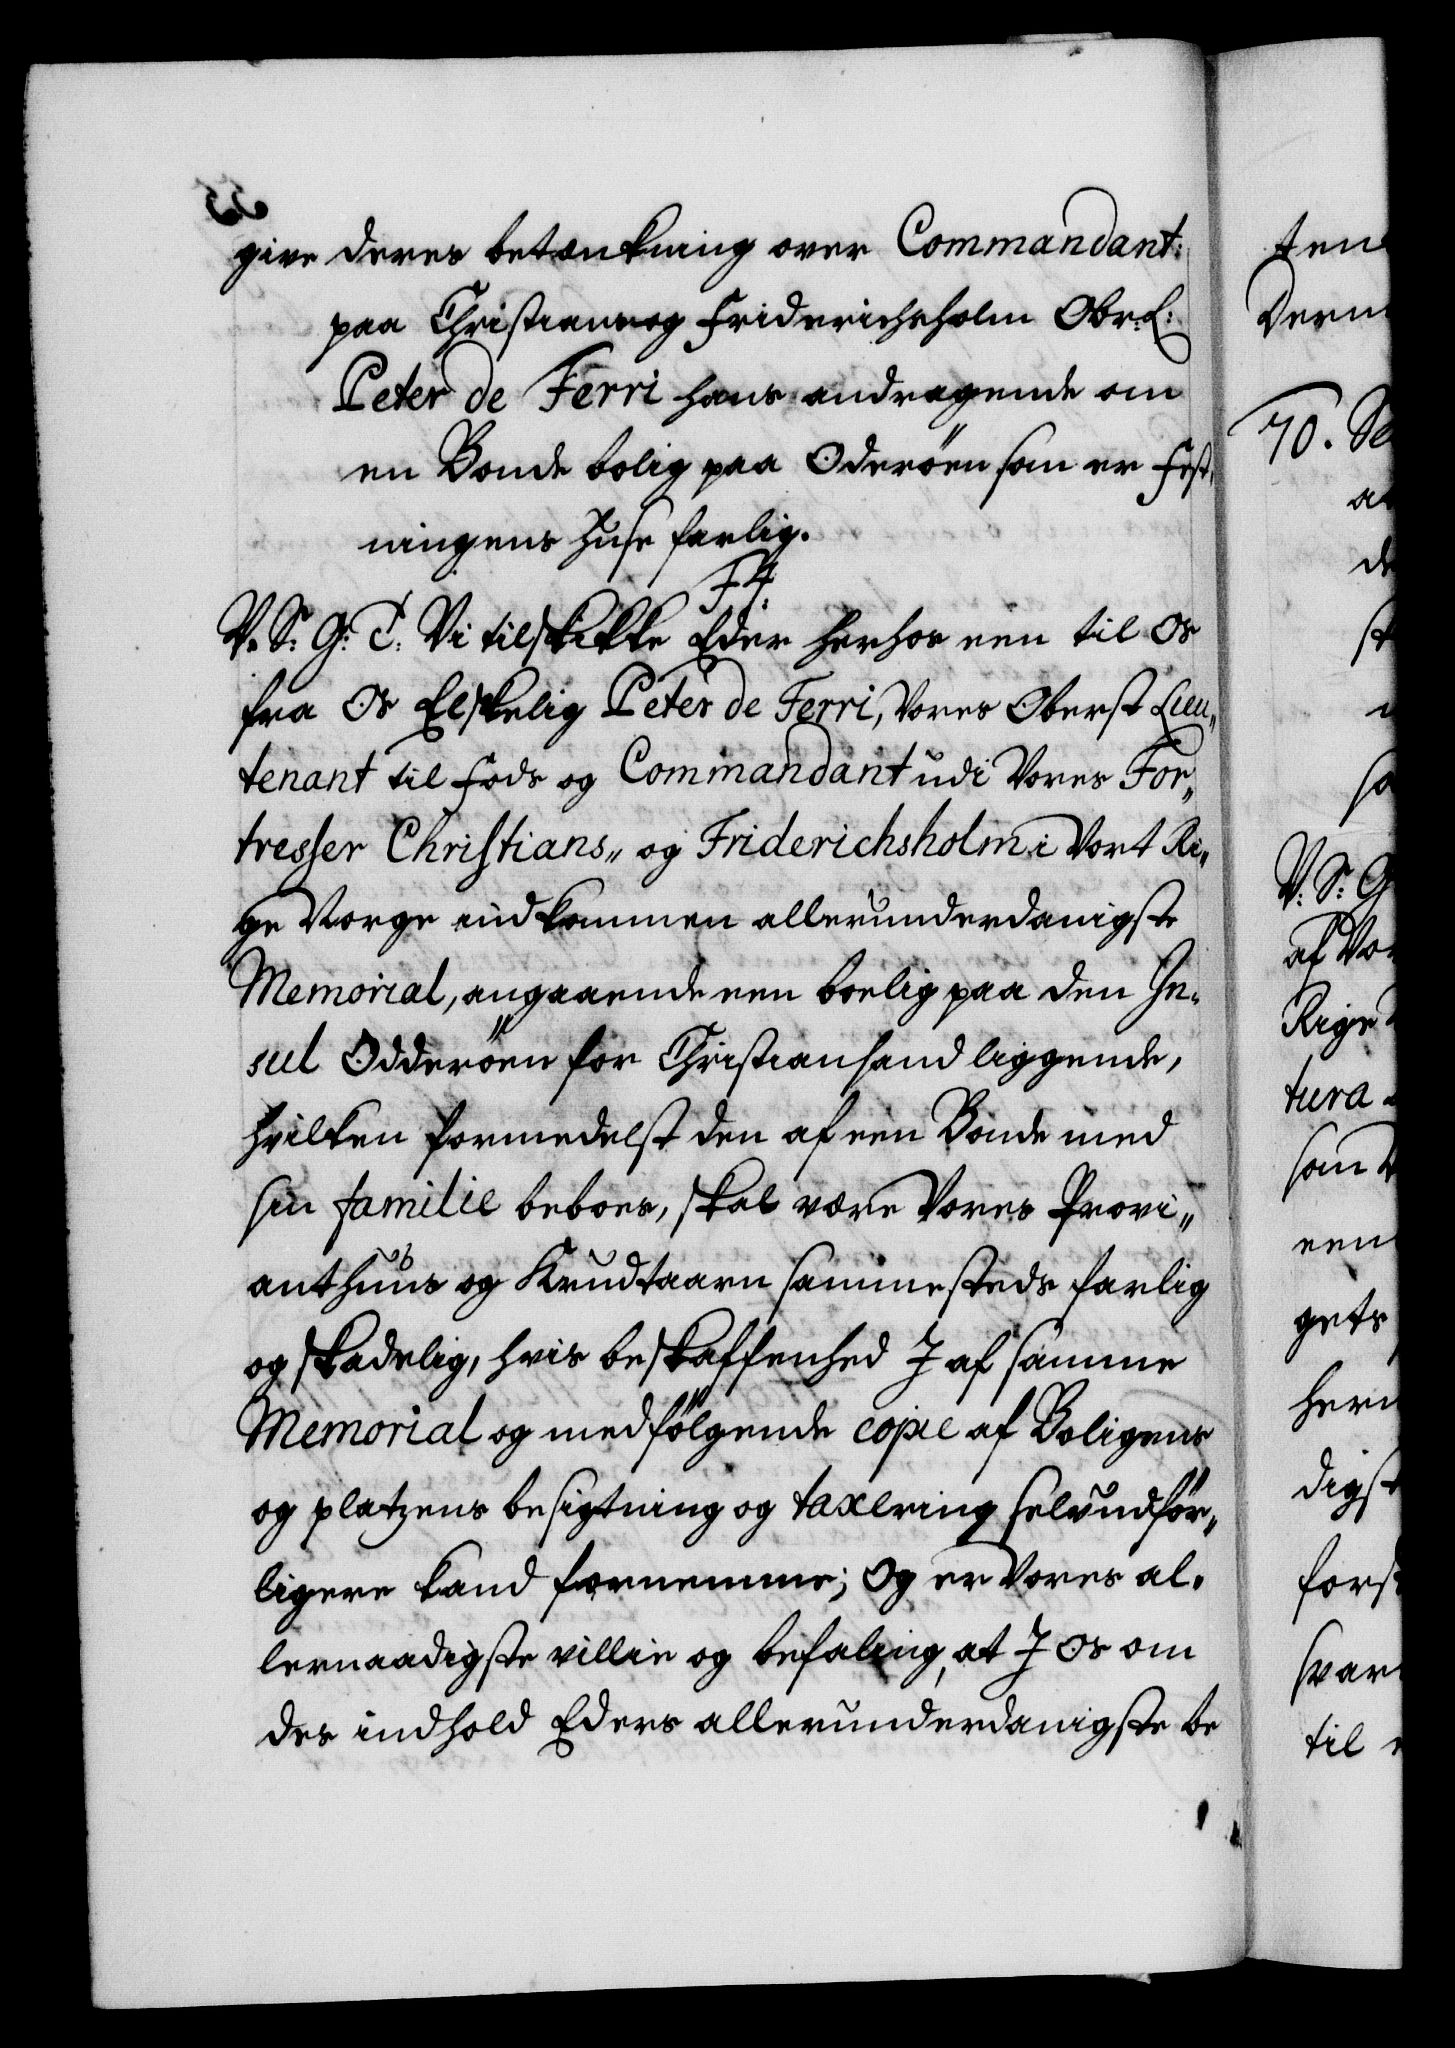 give deres betænkning over Commandant:
paa Christians og Friderichsholm Obr: L:
Peter de Ferri hans andragende om
en Bonde bolig paa Oderöen som er Fest„
ningens Huse farlig.
F4.
V. S: G: T: Vi tilskikke Eder herhos een til Os
fra Os Elskelig Peter de Ferri, Vores Oberst Lieu„
tenant til Fods og Commandant udi Vores For„
tresser Christians„ og Friderichsholm i Vort Ri„
ge Norge indkommen allerunderdanigste
Memorial, angaaende een boelig paa den In„
sul Odderöen for Christiansand liggende,
hvilken formedelst den af een Bonde med
sin familie beboes, skal være Vores Provi„
anthuus og Krudtaarn sammesteds farlig
og skadelig, hvis beskaffenhed I af samme
Memorial og medfölgende copie af Boligens
og platzens besigtning og taxering selv udför„
ligere kand fornemme; Og er Vores al„
lernaadigste villie og befaling, at I Os om
des indhold Eders allerunderdanigste be
ten
Dern
70. Se
a
de
st
so
V: S: G
af Vor
Rige
tura
som
een
gets
hern
digst
forst
svar
til